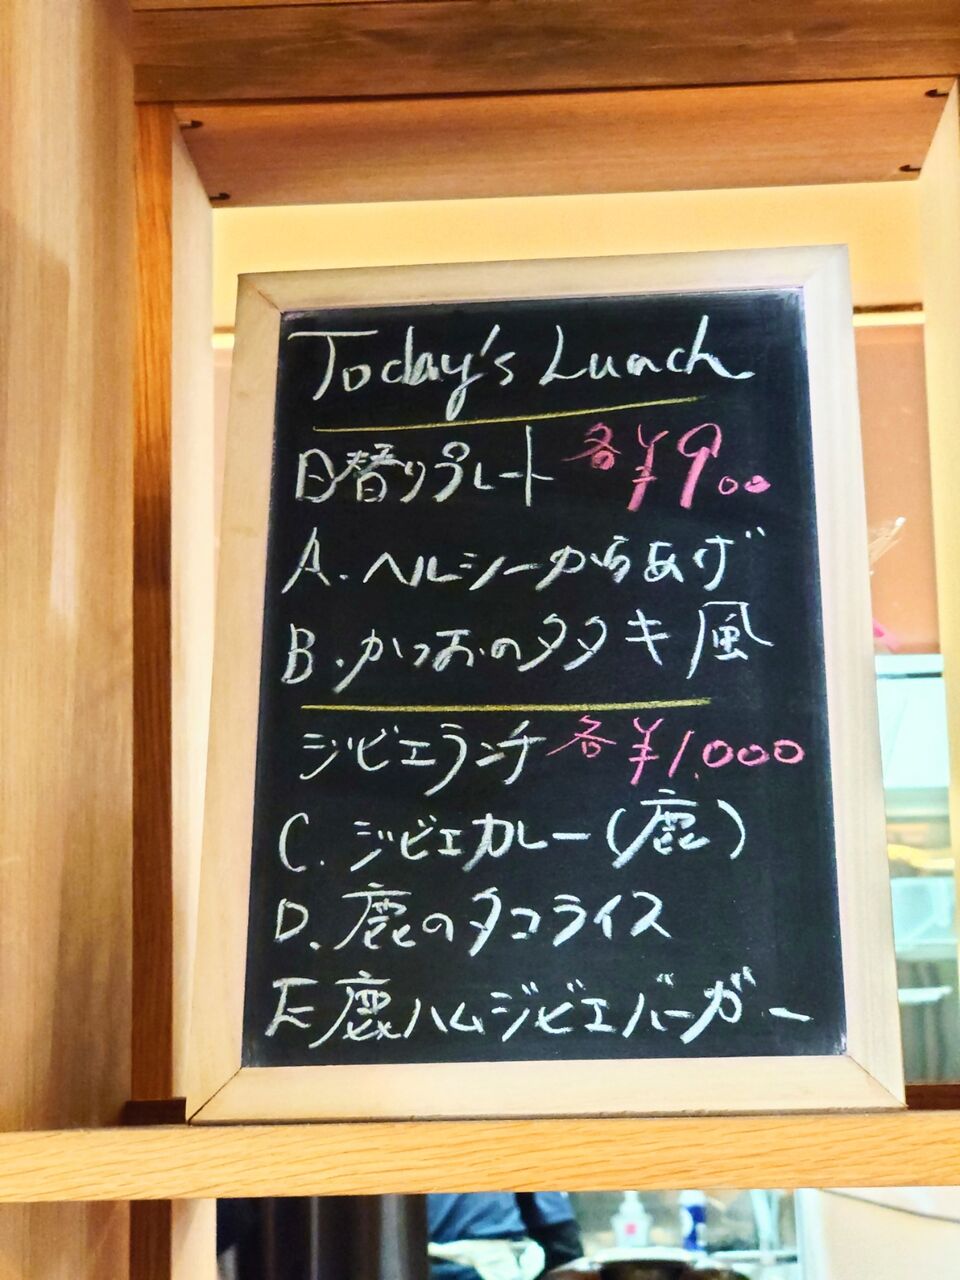 Today's Lunch
日替りプレート 各¥900
A. ヘルシーからあげ
B. かつおのタタキ風
ジビエランチ 各¥1,000
C. ジビエカレー(鹿)
D. 鹿のタコライス
E. 鹿ハムジビエバーガー